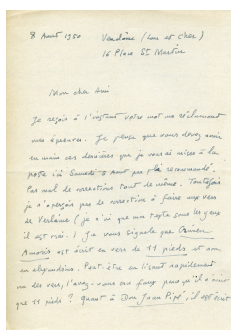 8 Aout 1950 Vendôme (Loir et Cher)
16 Place St Martin
Mon cher Ami
Je reçois à l'instant votre mot me réclamant
mes épreuves. Je pense que vous devez avoir
en main ces dernières que je vous ai mises à la
poste ici Samedi 5 Aout par pli recommandé.
Pas mal de corrections tout de même. Toutefois
je n'aperçois pas de correction à faire aux vers
de Verlaine (je n'ai que ma copie sous les yeux
il est vrai.) Je vous signale que Crimen
Amoris est écrit en vers de 11 pieds et non
en alexandrins. Peut-être en lisant rapidement
un des vers, l'avez-vous cru faux parce qu'il n'avait
que 11 pieds ? Quant à Don Juan Pipé, il est écrit